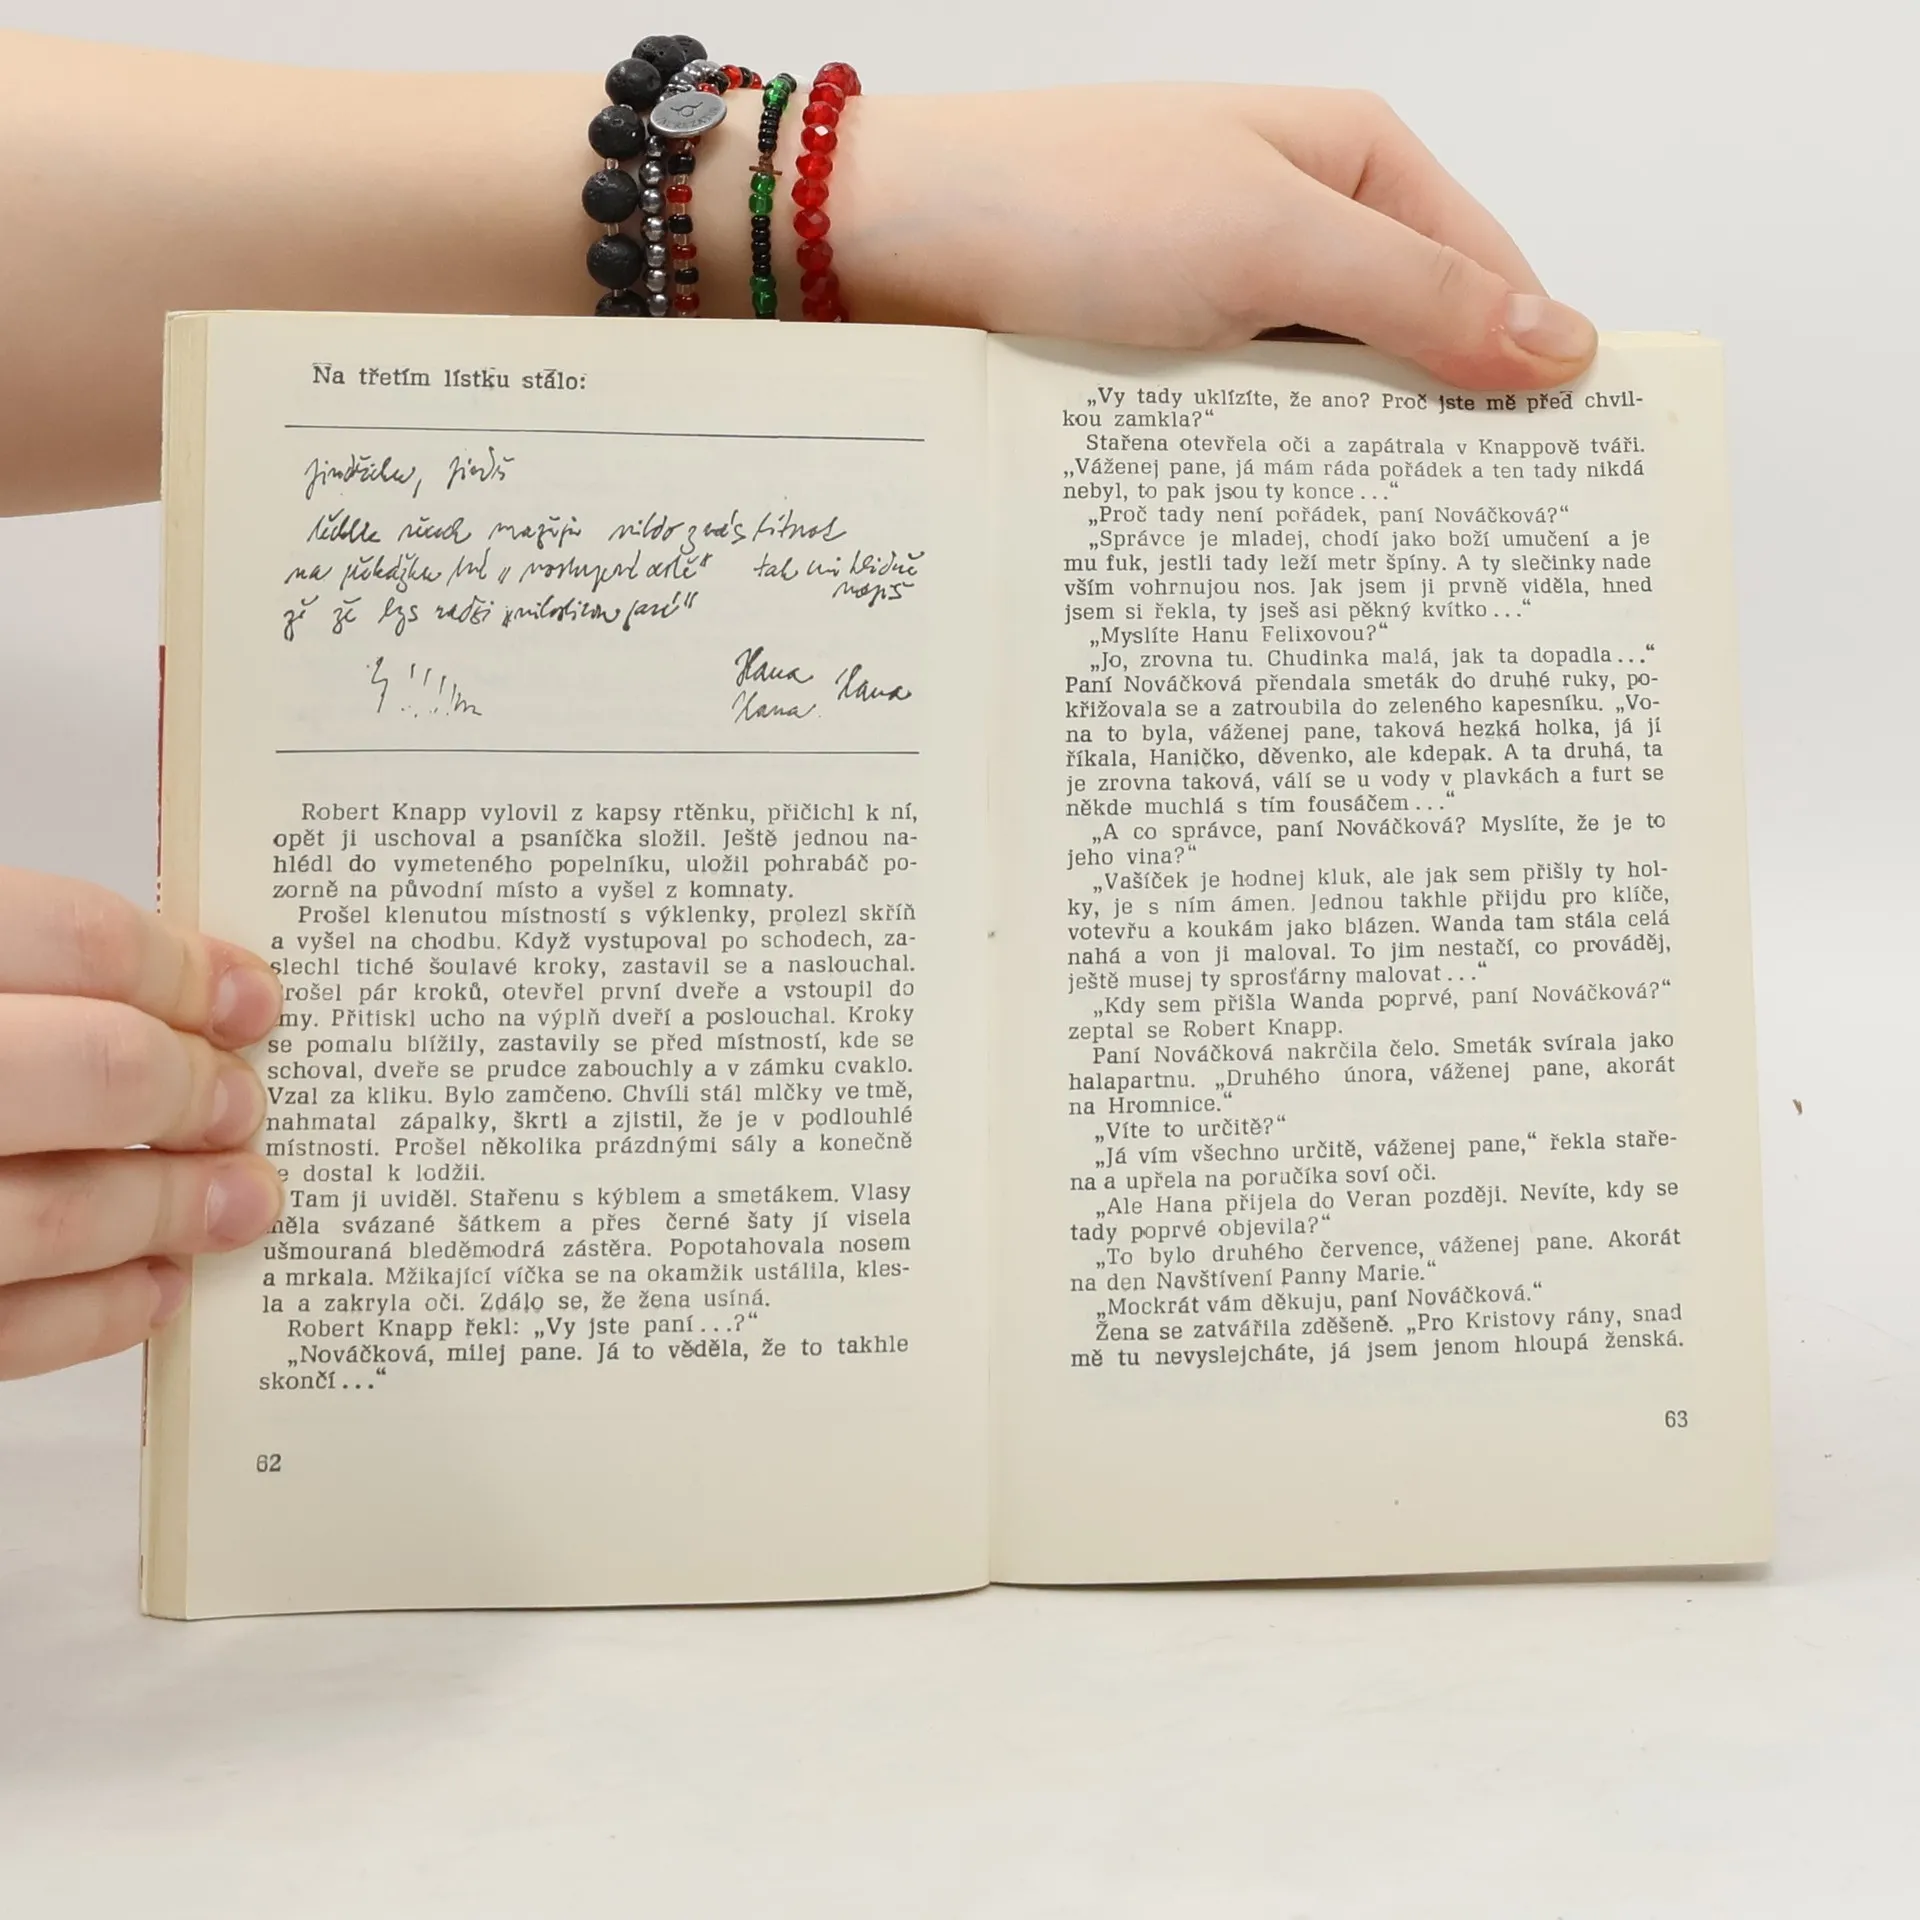 Na třetím lístku stálo:
na
že že
Hana
Hana
Hana
Robert Knapp vylovil z kapsy rtěnku, přičichl k ní,
opět ji uschoval a psaníčka složil. Ještě jednou na-
hlédl do vymeteného popelníku, uložil pohrabáč po-
zorně na původní místo a vyšel z komnaty.
Prošel klenutou místností s výklenky, prolezl skříň
a vyšel na chodbu. Když vystupoval po schodech, za-
slechl tiché šoulavé kroky, zastavil se a naslouchal.
rošel pár kroků, otevřel první dveře a vstoupil do
my. Přitiskl ucho na výplň dveří a poslouchal. Kroky
se pomalu blížily, zastavily se před místností, kde se
schoval, dveře se prudce zabouchly a v zámku cvaklo.
Vzal za kliku. Bylo zamčeno. Chvíli stál mlčky ve tmě,
nahmatal zápalky, škrtl a zjistil, že je v podlouhlé
místnosti. Prošel několika prázdnými sály a konečně
e dostal k lodžii.
Tam ji uviděl. Stařenu s kýblem a smetákem. Vlasy
měla svázané šátkem a přes černé šaty jí visela
ušmouraná bleděmodrá zástěra. Popotahovala nosem
a mrkala. Mžikající víčka se na okamžik ustálila, kles-
la a zakryla oči. Zdálo se, že žena usíná.
Robert Knapp řekl: „Vy jste paní...?“
„Nováčková, milej pane. Já to věděla, že to takhle
skončí...“
62
„Vy tady uklízíte, že ano? Proč jste mě před chvil-
kou zamkla?“
Stařena otevřela oči a zapátrala v Knappově tváři.
„Váženej pane, já mám ráda pořádek a ten tady nikdá
nebyl, to pak jsou ty konce...“
„Proč tady není pořádek, paní Nováčková?“
„Správce je mladej, chodí jako boží umučení a je
mu fuk, jestli tady leží metr špíny. A ty slečinky nade
vším vohrnujou nos. Jak jsem ji prvně viděla, hned
jsem si řekla, ty jseš asi pěkný kvítko...“
„Myslíte Hanu Felixovou?“
„Jo, zrovna tu. Chudinka malá, jak ta dopadla...“
Paní Nováčková přendala smeták do druhé ruky, po-
křižovala se a zatroubila do zeleného kapesníku. „Vo-
na to byla, váženej pane, taková hezká holka, já jí
říkala, Haničko, děvenko, ale kdepak. A ta druhá, ta
je zrovna taková, válí se u vody v plavkách a furt se
někde muchlá s tím fousáčem...“
„A co správce, paní Nováčková? Myslíte, že je to
jeho vina?“
„Vašíček je hodnej kluk, ale jak sem přišly ty hol-
ky, je s ním ámen. Jednou takhle přijdu pro klíče,
votevřu a koukám jako blázen. Wanda tam stála celá
nahá a von ji maloval. To jim nestačí, co prováděj,
ještě musej ty sprosťárny malovat...“
„Kdy sem přišla Wanda poprvé, paní Nováčková?“
zeptal se Robert Knapp.
Paní Nováčková nakrčila čelo. Smeták svírala jako
halapartnu. „Druhého února, váženej pane, akorát
na Hromnice.“
„Víte to určitě?“
„Já vím všechno určitě, váženej pane,“ řekla staře-
na a upřela na poručíka soví oči.
„Ale Hana přijela do Veran později. Nevíte, kdy se
tady poprvé objevila?“
„To bylo druhého července, váženej pane. Akorát
na den Navštívení Panny Marie.“
„Mockrát vám děkuju, paní Nováčková.“
Žena se zatvářila zděšeně. „Pro Kristovy rány, snad
mě tu nevyslejcháte, já jsem jenom hloupá ženská.
63